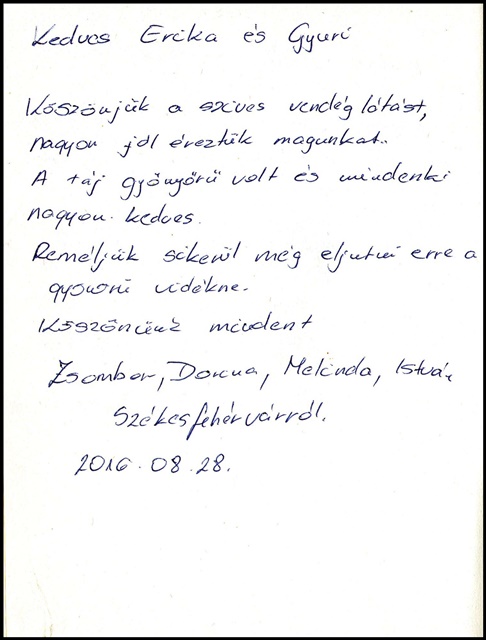 Kedves Erika és Gyuri
Köszönjük a szives vendéglátást,
nagyon jól éreztük magunkat.
A táj gyönyörű volt és mindenki
nagyon kedves.
Reméljük sikerül még eljutni erre a
vidékre.
Köszönünk mindent
Zsombor, Dorina, Melinda, István
Székesfehérvárról.
2016.08.28.